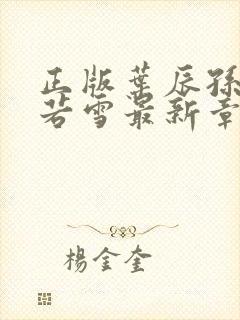 正版葉辰孫
若雪最新章
楊金奎